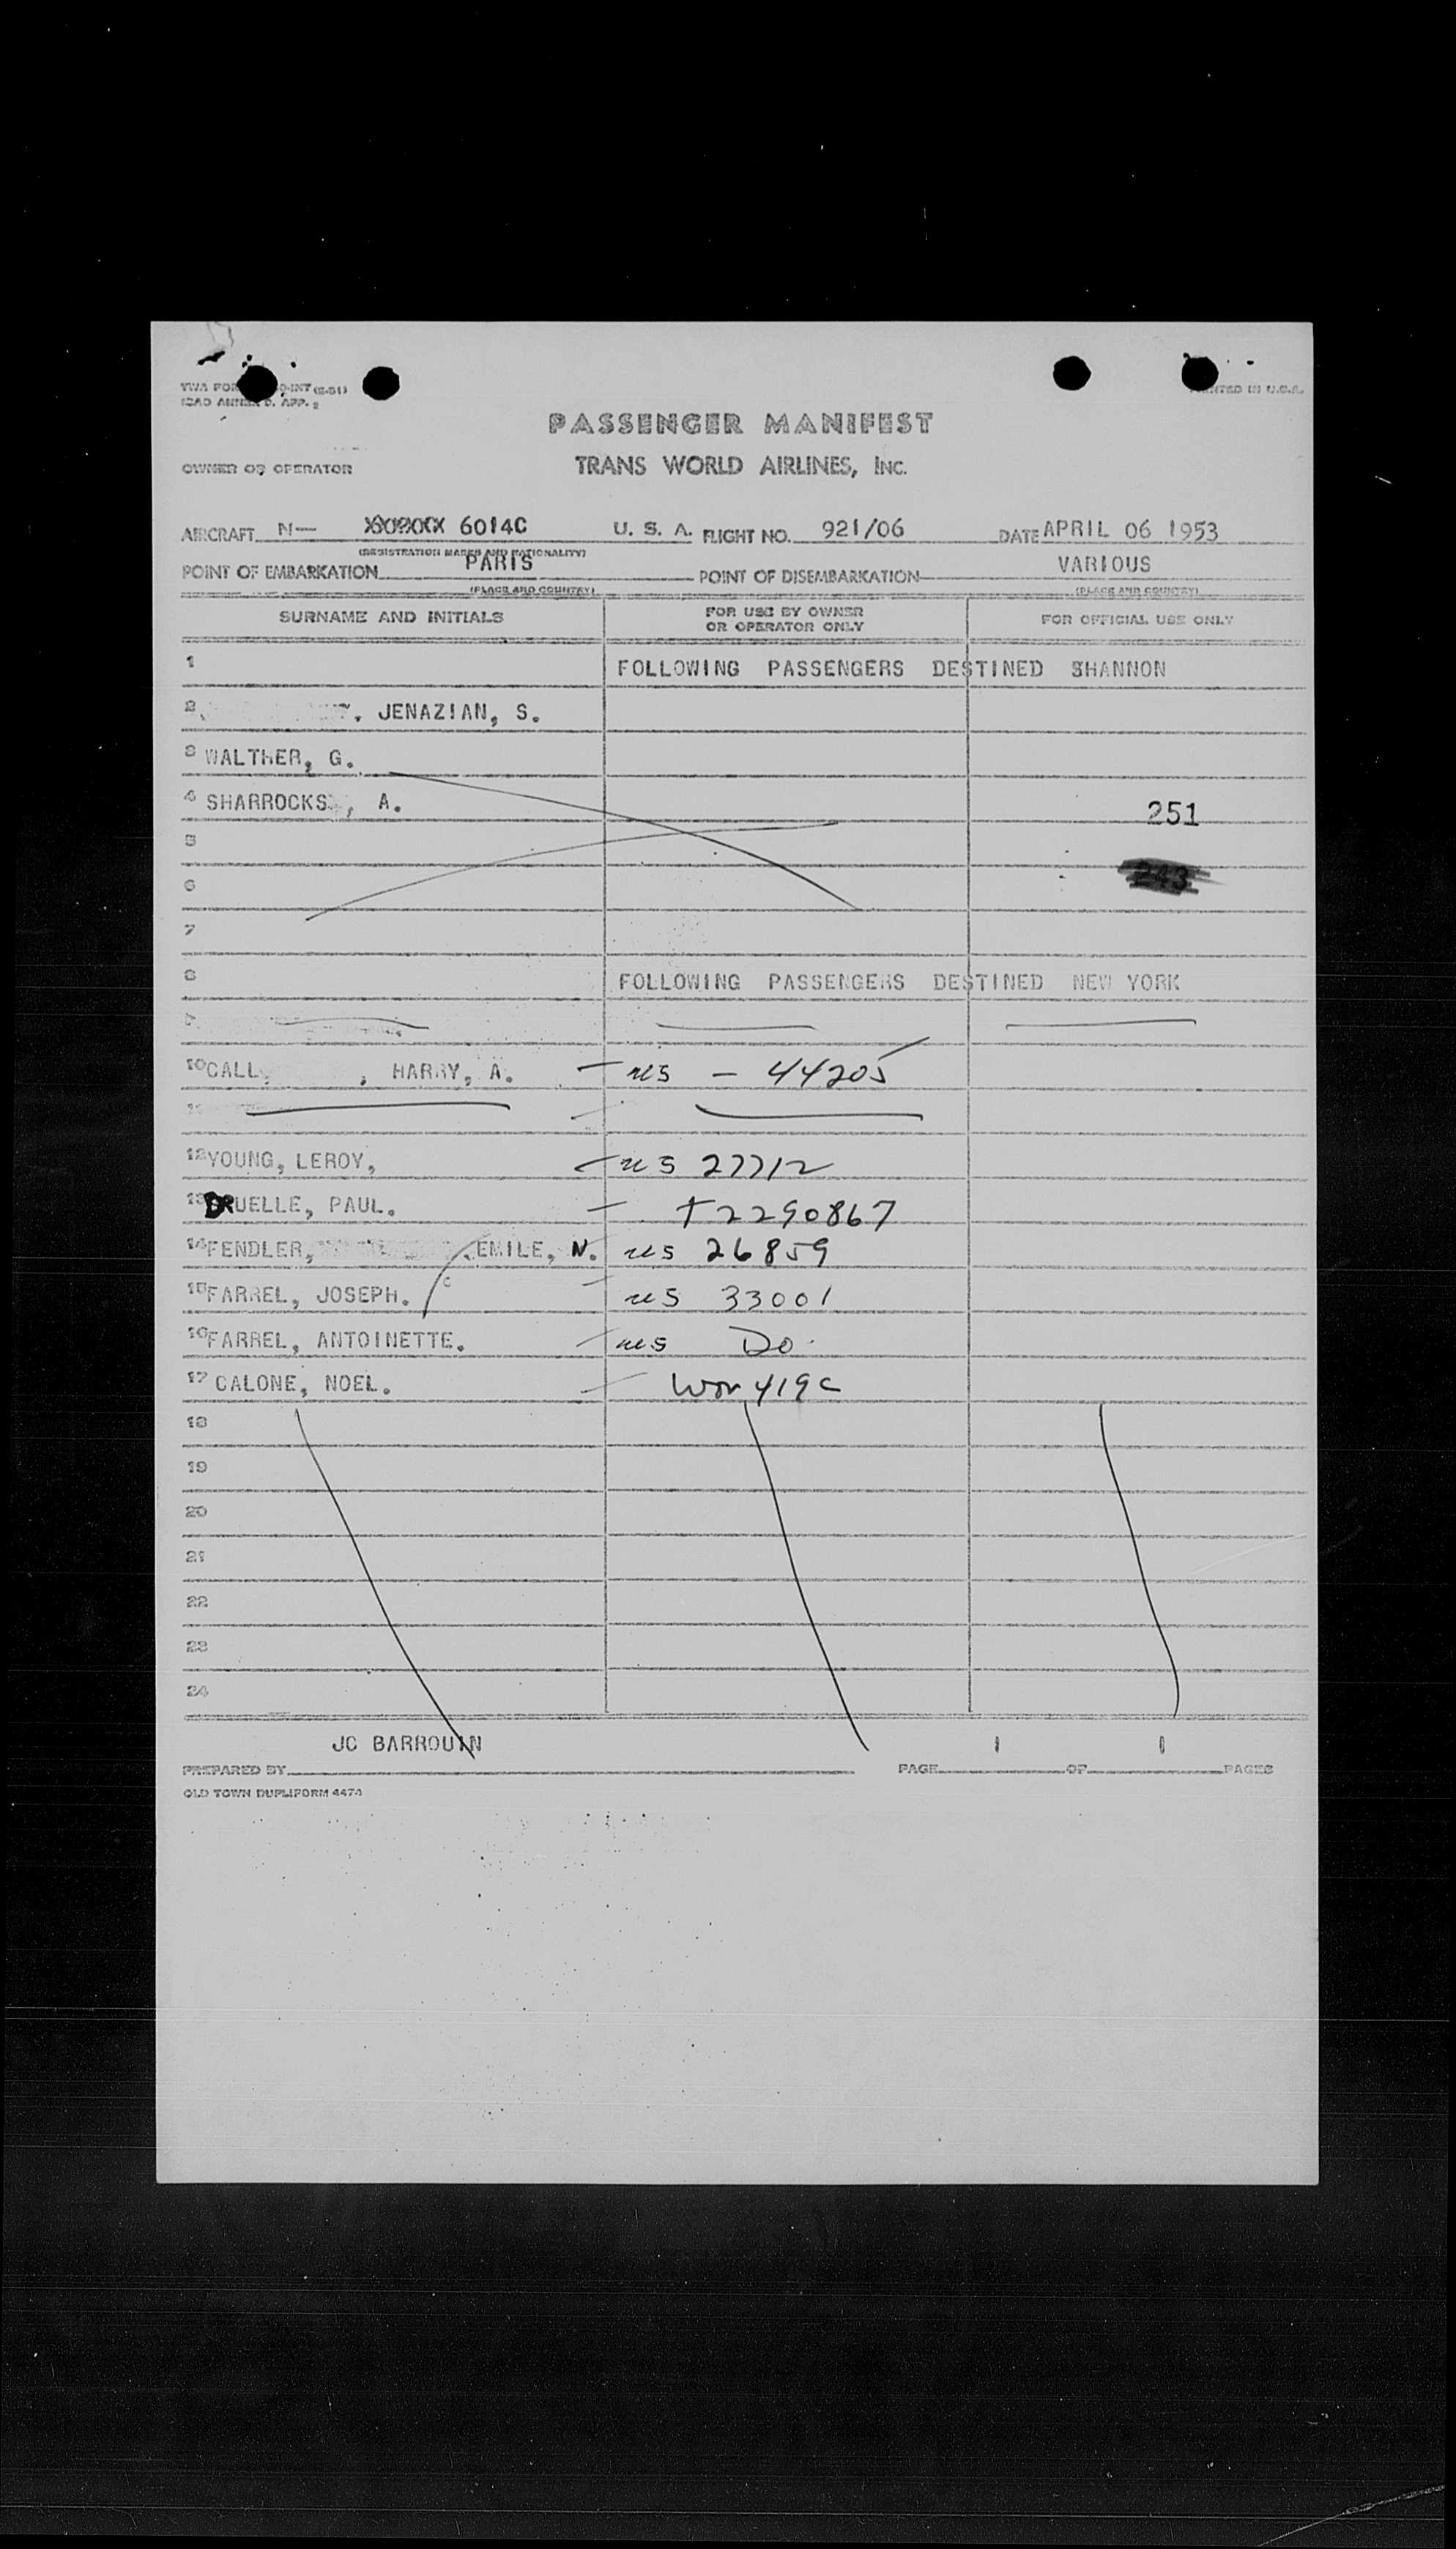 PRINTED IN U.S.A.
ICAO ANNEX 9, APP. 2
PASSENGER MANIFEST
OWNER OR OPERATOR TRANS WORLD AIRLINES, INC.
AIRCRAFT N— 6014C U. S. A. FLIGHT NO. 921/06 DATE APRIL 06 1953
(REGISTRATION MARKS AND NATIONALITY)
POINT OF EMBARKATION PARIS POINT OF DISEMBARKATION VARIOUS
(PLACE AND COUNTRY) (PLACE AND COUNTRY)
SURNAME AND INITIALS FOR USE BY OWNER OR OPERATOR ONLY FOR OFFICIAL USE ONLY
1 FOLLOWING PASSENGERS DESTINED SHANNON
2 JENAZIAN, S.
3 WALTHER, G.
4 SHARROCKS, A. 251
5
6 243
7
8 FOLLOWING PASSENGERS DESTINED NEW YORK
9
10 CALL, HARRY, A. — us — 44205
11
12 YOUNG, LEROY, — us 27712
13 DRUELLE, PAUL. — T2290867
14 FENDLER, EMILE, N. us 26859
15 FARREL, JOSEPH. — us 33001
16 FARREL, ANTOINETTE. — us Do.
17 CALONE, NOEL. —
18
19
20
21
22
23
24
JC BARROUIN 1 1
PREPARED BY PAGE OF PAGES
OLD TOWN DUPLIFORM 4474